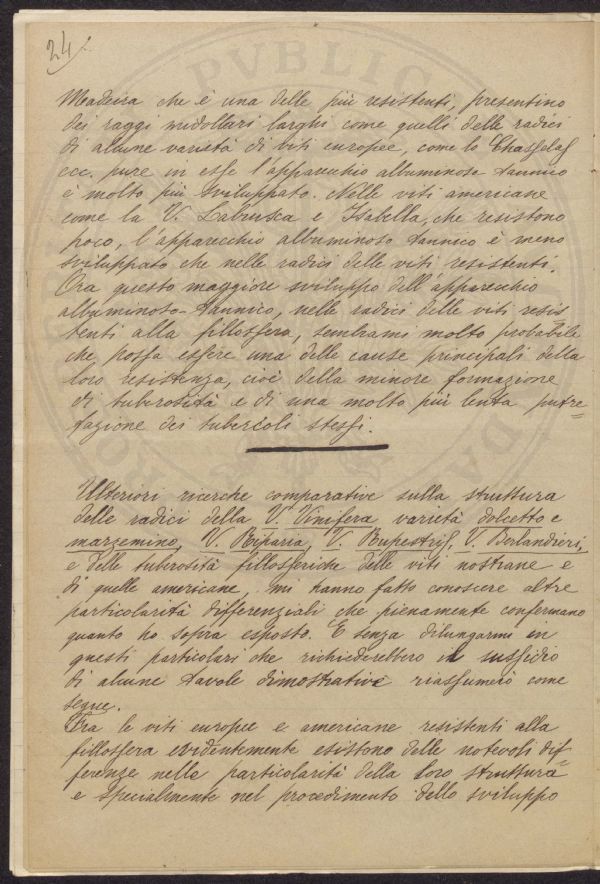 24
Madeira che è una delle più resistenti, presentino
dei raggi midollari larghi come quelli delle radici
di alcune varietà di viti europee, come lo Chasselas
ecc. pure in esse l'apparecchio albuminoso tannico
è molto più sviluppato. Nelle viti americane
come la V. Labrusca e Isabella, che resistono
poco, l'apparecchio albuminoso tannico è meno
sviluppato che nelle radici delle viti resistenti.
Ora questo maggiore sviluppo dell'apparecchio
albuminoso-tannico, nelle radici delle viti resis
tenti alla fillossera, sembrami molto probabile
che possa essere una delle cause principali della
loro resistenza, cioè della minore formazione
di tuberosità e di una molto più lenta putre=
fazione dei tubercoli stessi.
Ulteriori ricerche comparative sulla struttura
delle radici della V. Vinifera varietà dolcetto e
marzemino, V. Riparia, V. Rupestris, V. Berlandieri,
e delle tuberosità fillosseriche delle viti nostrane e
di quelle americane, mi hanno fatto conoscere altre
particolarità differenziali che pienamente confermano
quanto ho sopra esposto. E senza dilungarmi in
questi particolari che richiederebbero il sussidio
di alcune tavole dimostrative riassumerò come
segue.
Fra le viti europee e americane resistenti alla
fillossera evidentemente esistono delle notevoli dif=
ferenze nelle particolarità della loro struttura
e specialmente nel procedimento dello sviluppo
PVBLIC